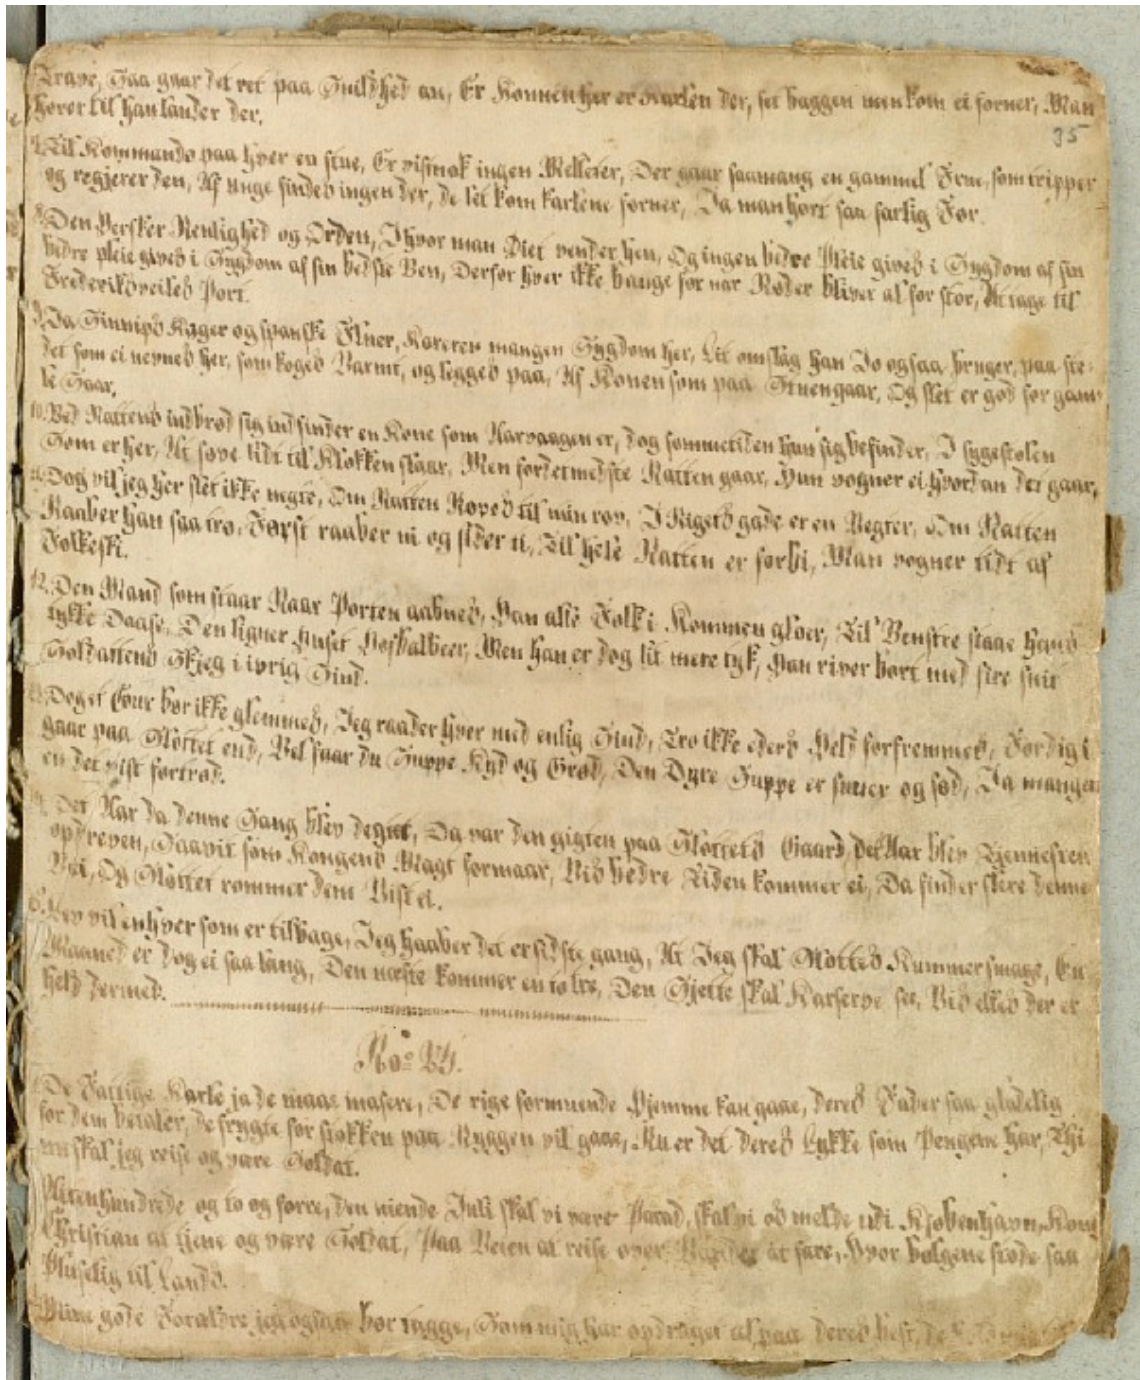 Trave, Saa gaar det ret paa Snildhed an, Er Konnen her er Karlen der, set baggen men kom ei forner, Man
hører til han lander der.
35
Til Kommando paa hver en stue, Er vistnok ingen Melleter, Der gaar saamang en gammel Frue, som tripper
og regjerer den, Af unge findes ingen der, de let kom Karlene forner, Ja man hørt saa farlig Før.
8. Den Hersker Renlighed og Orden, I hvor man Øiet vender hen, Og ingen bedre Pleie gives i Sygdom af sin
bedre pleie gives i Sygdom af sin bedste Ven, Derfor hver ikke bange for nar Nøden bliver al for stor, At tage til
Frederiksveiles Port.
9. Ja Sinnips Kager og spanske Fluer, Kurerer mangen Sygdom her, Lit omslag han Jo ogsaa bruger, paa ste-
det som ei nevnes her, som koges Varmt, og legges paa, Af Konen som paa Stuen gaar, Og slet er god for gam-
le Saar.
10. Ved Nattens indbrod sig indfinder en Kone som Aarvaagen er, dog sommetiden hun sig befinder, I sygestolen
Som er her, At sove lidt til Klokken slaar, Men fordetmeste Natten gaar, Hun vogner ei hvordan det gaar,
11. Dog vil jeg her slet ikke negte, Om Natten Røves til min rov, I Rigets gade er en Vegter, Om Natten
Raaber han saa tro, Først raaber ni og sider ti, Til hele Natten er forbi, Man vogner tidt af
Folkeski.
12. Den Mand som staar Naar Porten aabnes, Han alle Folk i Kommen gloer, Til Venstre staae hans
tykke Daase, Den ligner huset Hospalbeer, Men han er dog lit mere tyk, Han river bort med sire snit
Soldattens Skjeg i ivrig Sind.
13. Doget Cour bør ikke glemmes, Jeg raader hver med enlig Sind, Tro ikke eders Held forfremmes, Før dig i
gaar paa Slottet end, Vel faar du Suppe Kjød og Grød, Den Dyre Suppe er suuer og sød, Ja mangen
en det vist fortrød.
14. Det Aar da denne Sang blev degtet, Da var den gigten paa Slottets Gaard, det Aar blev Tjennesten
opdreven, Saavit som Kongens Magt formaar, Vis bedre Tiden kommer ei, Da finder flere denne
Vei, Og Slottet rommer dem Vist ei.
15. Lev vil enhver som er tilbage, Jeg haaber det er sidste gang, At Jeg skal Slottes Kummer smage, En
Maaned er dog ei saa lang, Den næste kommer en to tre, Den Sjette skal Karserne see, Vis elles der er
held dermed.
No. 24.
De Fattige Karle ja de maae masere, De rige formuende Hjemme kan gaae, deres Fader saa gladelig
for dem betaler, de frygte for stokken paa Ryggen vil gaae, Nu er det deres Lykke som Pengene har, Thi
nu skal jeg reise og være Soldat.
Attenhundrede og to og førre, den niende Juli skal vi være Parad, skal vi os melde udi Kjøbenhavn, Kong
Christian at tjene og være Soldat, Paa Veien at reise over Vandet at fare, Hvor bølgene støde saa
Pluselig til Lands.
Mine gode Forældre jeg ogsaa bør takke, Som mig har opdraget alt paa deres best, de